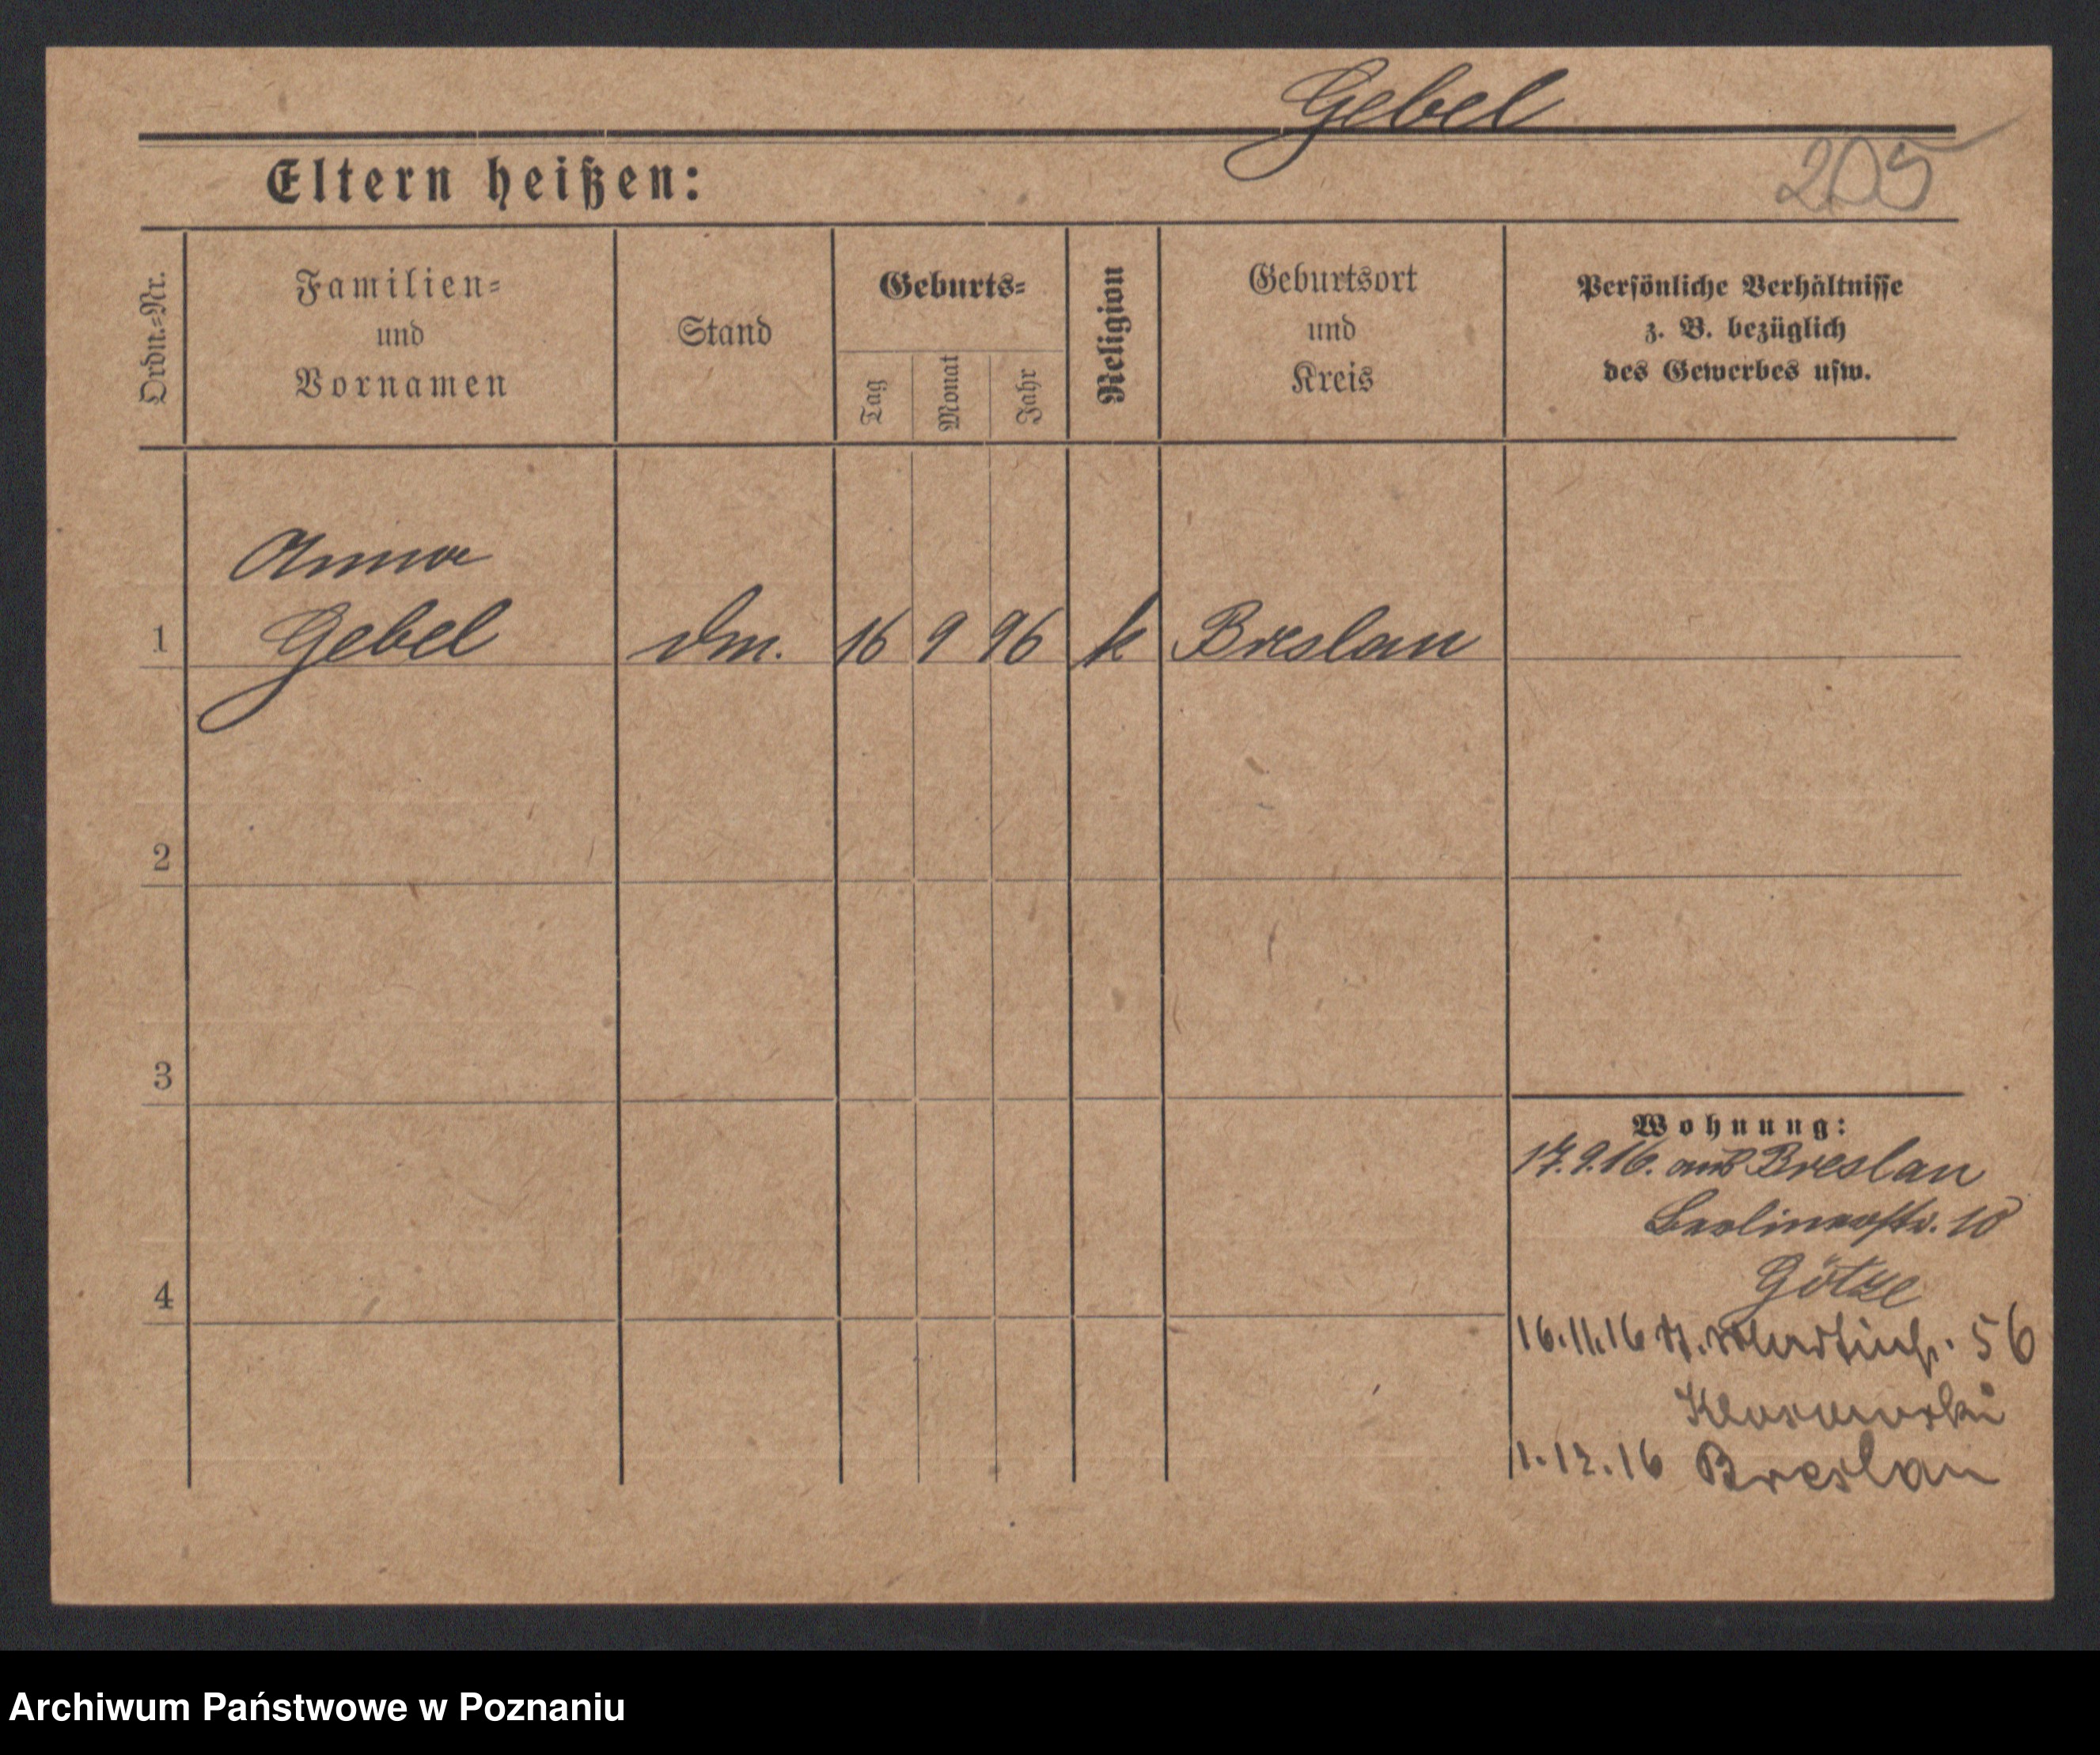 Gebel
205
Eltern heißen:
Ordn.=Nr.
Familien=
und
Vornamen
Stand
Geburts=
Tag
Monat
Jahr
Religion
Geburtsort
und
Kreis
Persönliche Verhältnisse
z. B. bezüglich
des Gewerbes usw.
Anna
1 Gebel Dm. 16 9 96 k Breslau
2
3
4
Wohnung:
17.9.16. aus Breslau
Berlinerstr. 10
Götze
16.11.16 St. Martinstr. 56
1.12.16 Breslau
Archiwum Państwowe w Poznaniu